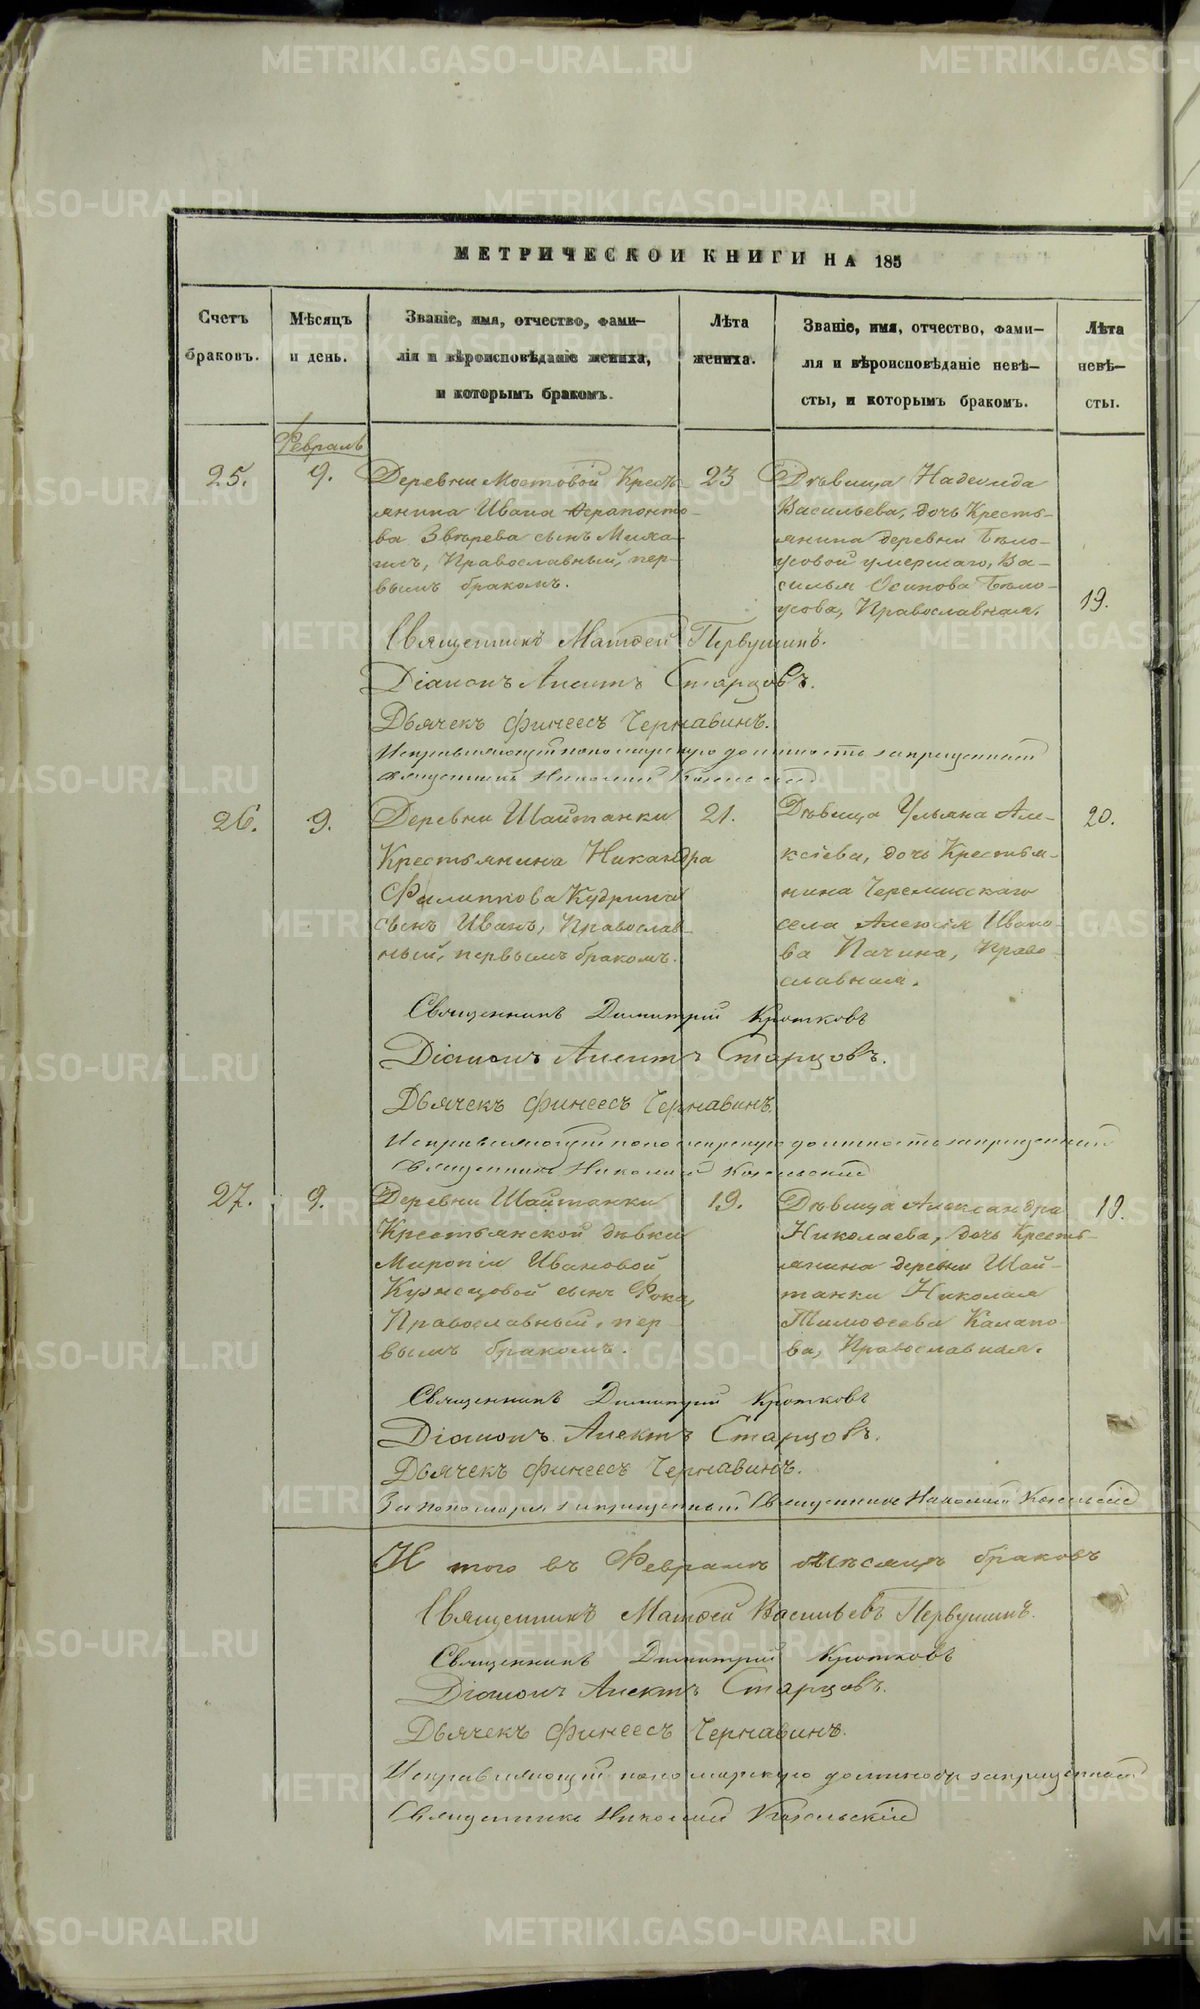 МЕТРИЧЕСКОИ КНИГИ НА 185
Счетъ
браковъ.
Мѣсяцъ
и день.
Званіе, имя, отчество, фами—
лія и вѣроисповѣданіе жениха,
и которымъ бракомъ.
Лѣта
жениха.
Званіе, имя, отчество, фами—
лія и вѣроисповѣданіе невѣ—
сты, и которымъ бракомъ.
Лѣта
невѣ—
сты.
Февраль
25.
9.
Деревни Мостовой Кресть-
янина Ивана Ферапонто-
ва Звѣрева сынъ Миха-
илъ, Православный, пер-
вымъ бракомъ.
23
Дѣвица Надежда
Васильева, дочь Кресть-
янина деревни Бѣло-
усовой умершаго, Ва-
силья Осипова Бѣло-
усова, Православная.
19.
Священникъ Матѳей Первушинъ.
Діаконъ Анектъ Старцовъ.
Дьячекъ Финеесъ Чернавинъ.
Исправляющій пономарскую должность запрещенный
священникъ Николай
26.
9.
Деревни Шайтанки
Крестьянина Никандра
Филиппова Кудрина
сынъ Иванъ, Православ-
ный, первымъ бракомъ.
21.
Дѣвица Ульяна Але-
ксіева, дочь Крестья-
нина Черемисскаго
села Алексія Ивано-
ва Пачина, Право-
славная.
20.
Священникъ Димитрій Кротковъ
Діаконъ Анектъ Старцовъ.
Дьячекъ Финеесъ Чернавинъ
Исправляющій пономарскую должность запрещенный
священникъ Николай
27.
9.
Деревни Шайтанки
Крестьянской дѣвки
Миропіи Ивановой
Кузнецовой сынъ Фока,
Православный, пер-
вымъ бракомъ.
19.
Дѣвица Александра
Николаева, дочь Кресть-
янина деревни Шай-
танки Николая
Тимоѳеева Калапо-
ва, Православная.
18.
Священникъ Димитрій Кротковъ
Діаконъ Анектъ Старцовъ.
Дьячекъ Финеесъ Чернавинъ.
За пономаря запрещенный Священникъ Николай
И того въ Февралѣ мѣсяцѣ браковъ
Священникъ Матѳей Васильевъ Первушинъ.
Священникъ Димитрій Кротковъ
Діаконъ Анектъ Старцовъ.
Дьячекъ Финеесъ Чернавинъ.
Исправляющій пономарскую должность запрещенный
Священникъ Николай